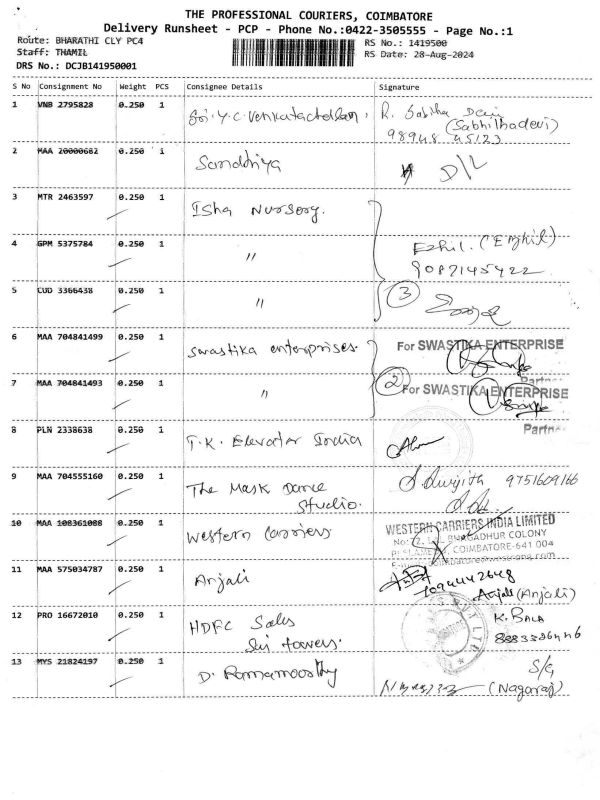 THE PROFESSIONAL COURIERS, COIMBATORE
Delivery Runsheet - PCP - Phone No.:0422-3505555 - Page No.:1
Route: BHARATHI CLY PC4
RS No.: 1419500
Staff: THAMIL
RS Date: 28-Aug-2024
DRS No.: DCJB141950001
S No Consignment No Weight PCS Consignee Details Signature
1 VNB 2795828 0.250 1 Sri. Y.C. Venkatachellam. R. Sabitha Devi
(Sabhithadevi)
98948 45123
2 MAA 20000682 0.250 1 Sandhiya D/L
3 MTR 2463597 0.250 1 Isha Nursery.
4 GPM 5375784 0.250 1 " Ezhil. (Ezhil)
9087145422
5 CUD 3366438 0.250 1 " 3
6 MAA 704841499 0.250 1 Swastika enterprises. For SWASTIKA ENTERPRISE
Partner
7 MAA 704841493 0.250 1 " 2 For SWASTIKA ENTERPRISE
Partner
8 PLN 2338638 0.250 1 T.K. Elevator India
9 MAA 704555160 0.250 1 The Mask Dance 9751609166
Studio.
10 MAA 108361088 0.250 1 Western Carriers WESTERN CARRIERS INDIA LIMITED
BHAGADHUR COLONY
COIMBATORE-641 004
11 MAA 575034787 0.250 1 Anjali
Anjali (Anjali)
12 PRO 16672010 0.250 1 HDFC Sales K. BALA
Sri towers.
13 MYS 21824197 0.250 1 D. Ramamoorthy S/G
(Nagaraj)